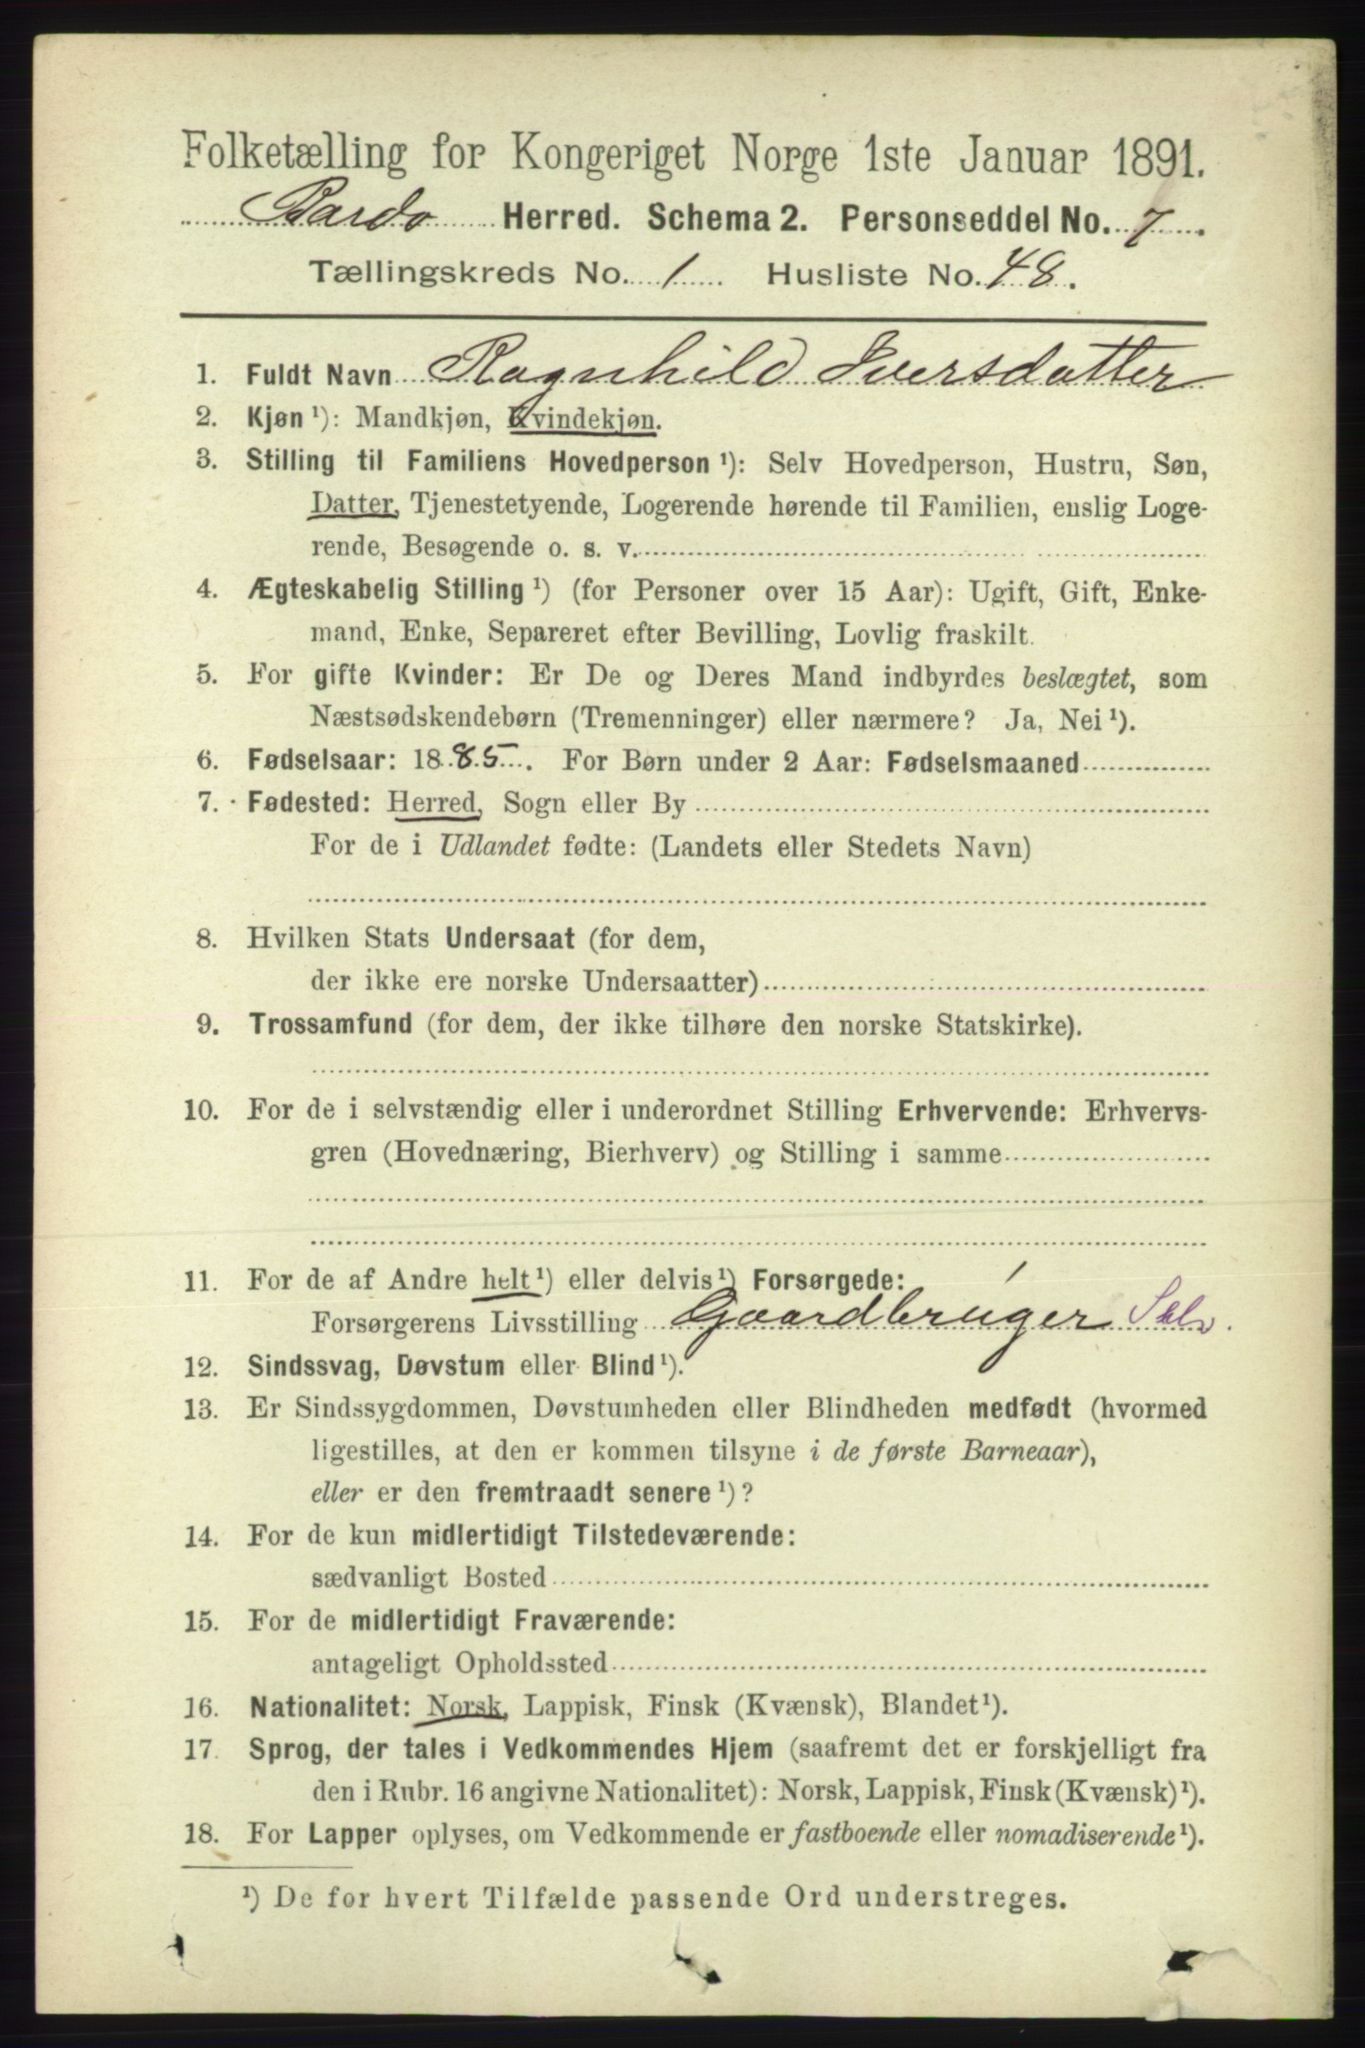 Folketælling for Kongeriget Norge 1ste Januar 1891.
Bardo Herred. Schema 2. Personseddel No. 7.
Tællingskreds No. 1 Husliste No. 48.
1. Fuldt Navn Ragnhild Iversdatter
2. Kjøn ¹): Mandkjøn, Kvindekjøn.
3. Stilling til Familiens Hovedperson ¹): Selv Hovedperson, Hustru, Søn,
Datter, Tjenestetyende, Logerende hørende til Familien, enslig Loge-
rende, Besøgende o. s. v.
4. Ægteskabelig Stilling ¹) (for Personer over 15 Aar): Ugift, Gift, Enke-
mand, Enke, Separeret efter Bevilling, Lovlig fraskilt.
5. For gifte Kvinder: Er De og Deres Mand indbyrdes beslægtet, som
Næstsødskendebørn (Tremenninger) eller nærmere? Ja, Nei ¹).
6. Fødselsaar: 1885. For Børn under 2 Aar: Fødselsmaaned
7. Fødested: Herred, Sogn eller By
For de i Udlandet fødte: (Landets eller Stedets Navn)
8. Hvilken Stats Undersaat (for dem,
der ikke ere norske Undersaatter)
9. Trossamfund (for dem, der ikke tilhøre den norske Statskirke).
10. For de i selvstændig eller i underordnet Stilling Erhvervende: Erhvervs-
gren (Hovednæring, Bierhverv) og Stilling i samme
11. For de af Andre helt ¹) eller delvis ¹) Forsørgede:
Forsørgerens Livsstilling Gaardbruger Selv.
12. Sindssvag, Døvstum eller Blind ¹).
13. Er Sindssygdommen, Døvstumheden eller Blindheden medfødt (hvormed
ligestilles, at den er kommen tilsyne i de første Barneaar),
eller er den fremtraadt senere ¹)?
14. For de kun midlertidigt Tilstedeværende:
sædvanligt Bosted
15. For de midlertidigt Fraværende:
antageligt Opholdssted
16. Nationalitet: Norsk, Lappisk, Finsk (Kvænsk), Blandet ¹).
17. Sprog, der tales i Vedkommendes Hjem (saafremt det er forskjelligt fra
den i Rubr. 16 angivne Nationalitet): Norsk, Lappisk, Finsk (Kvænsk) ¹).
18. For Lapper oplyses, om Vedkommende er fastboende eller nomadiserende ¹).
¹) De for hvert Tilfælde passende Ord understreges.